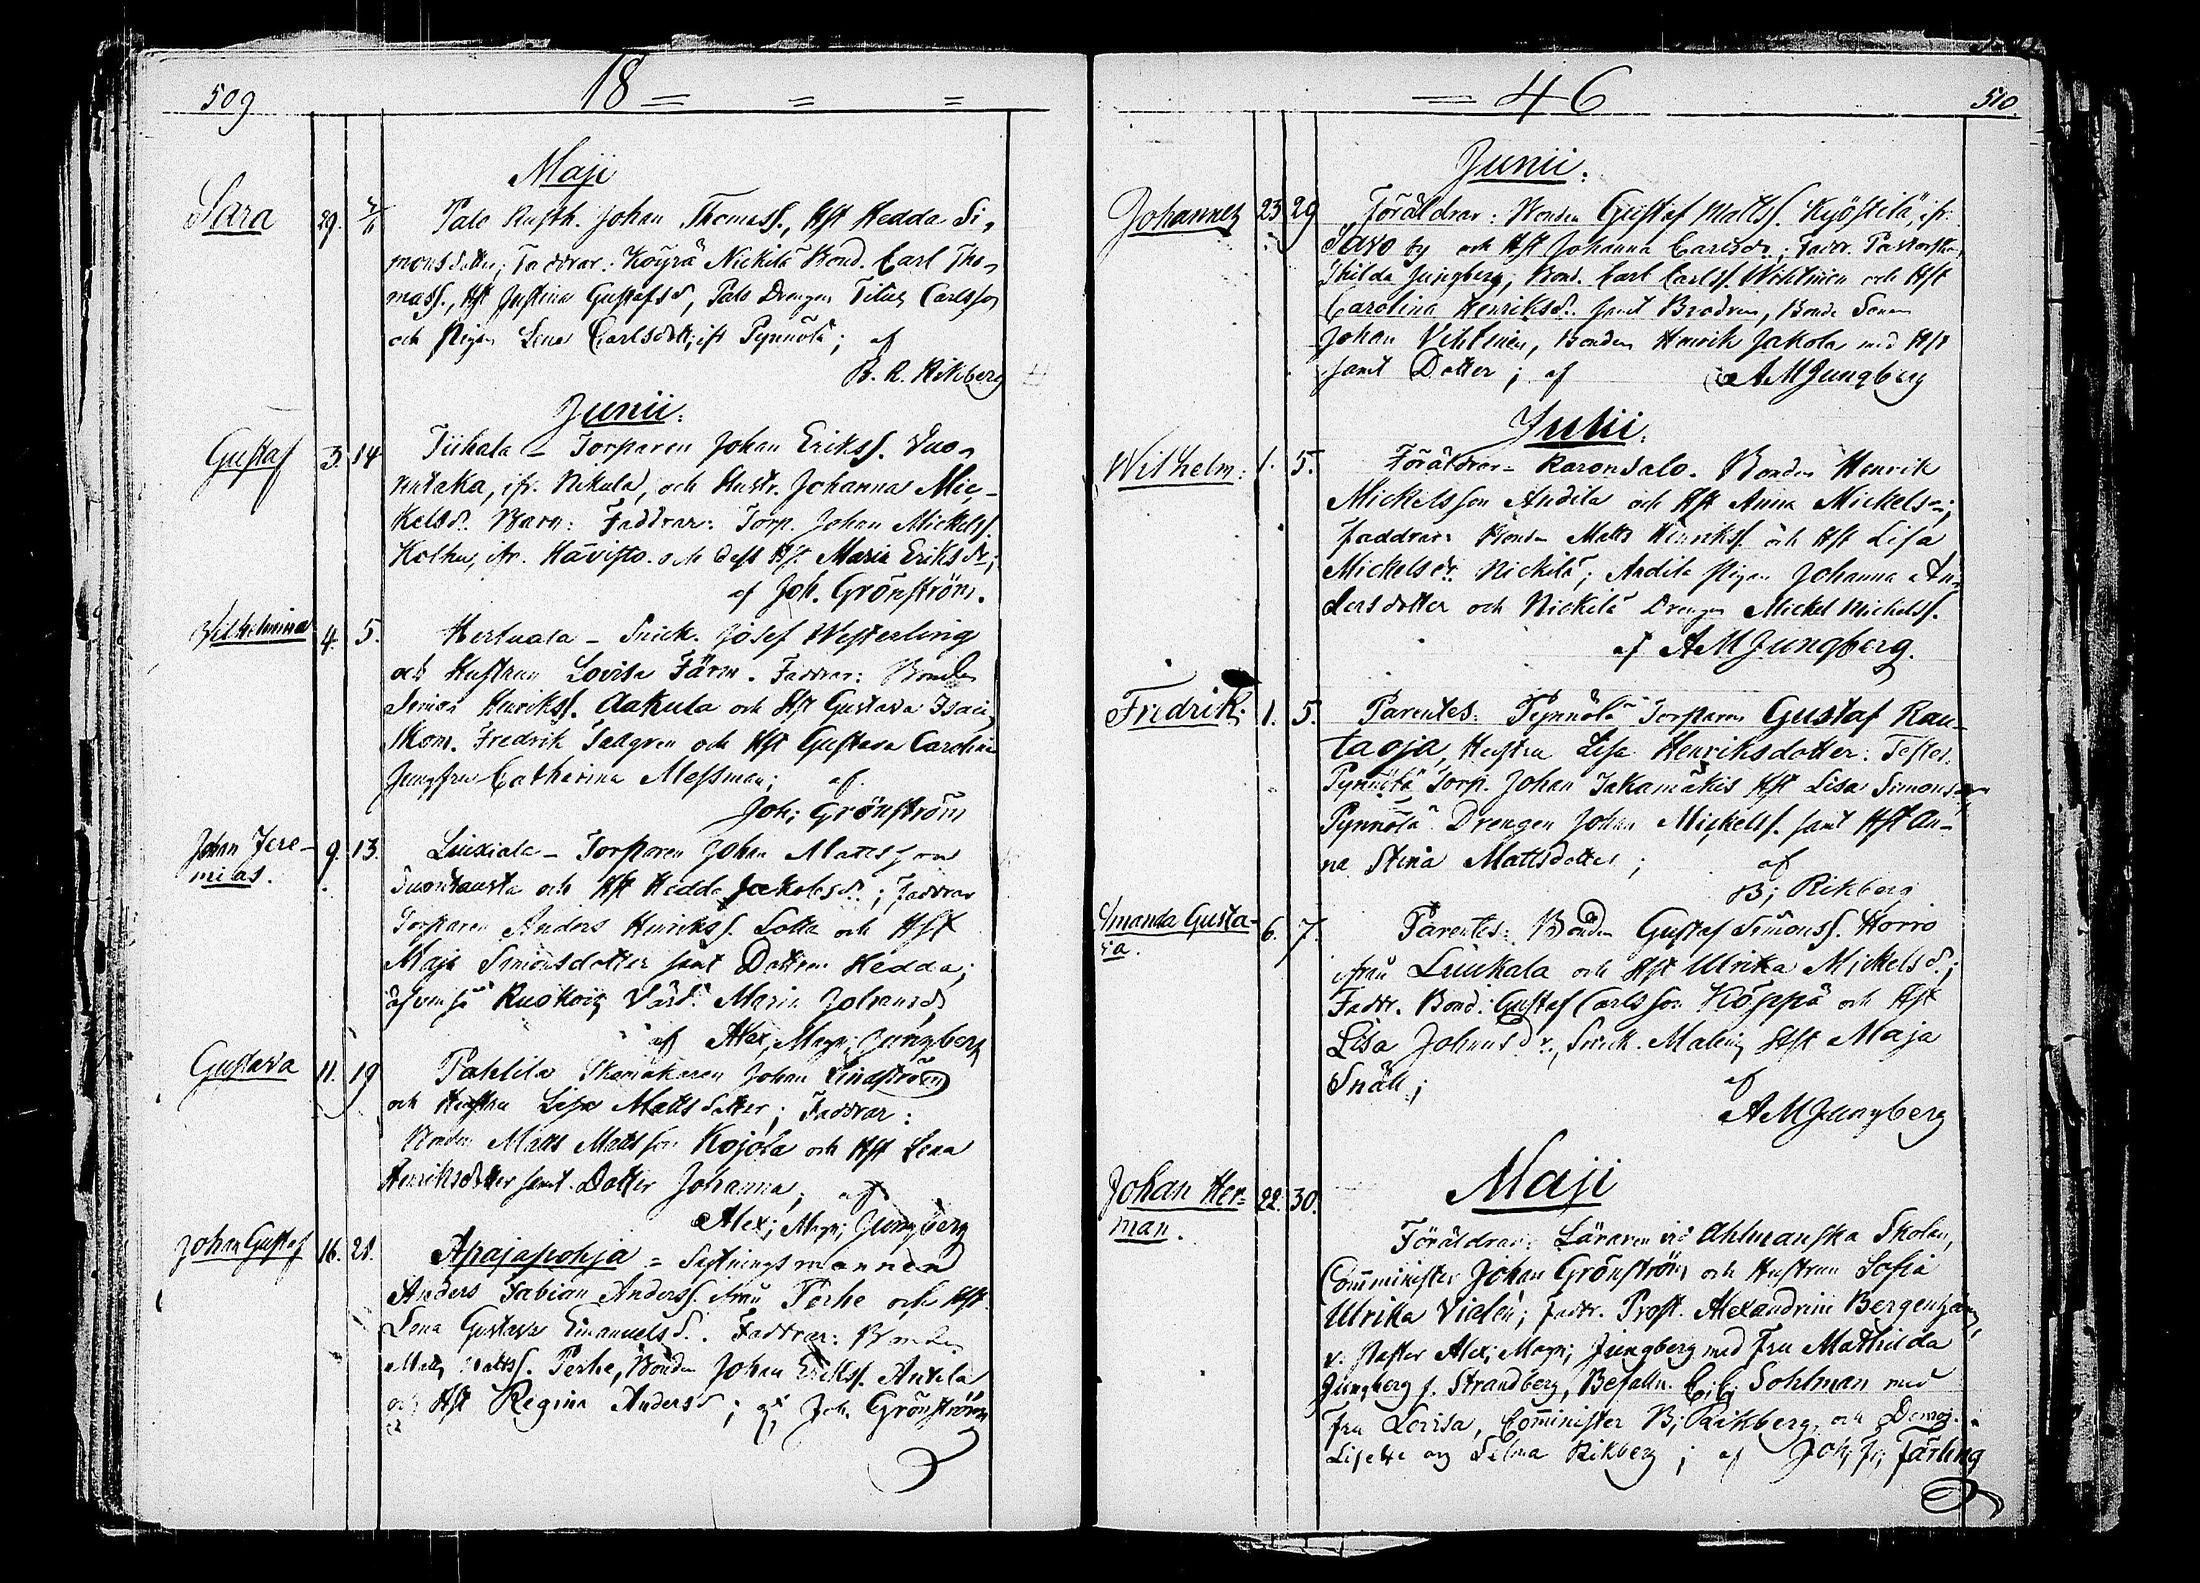 509
18 = = =
Maji
Sara 29. 2/6 Palo Rusth. Johan Thomass., Hst Hedda Si-
monsdotter; Faddrar: Köyrä Nickilä Bond. Carl Tho-
mass., Hst Justina Gustafsd, Palo Drengen Titus Carlsson
och Pigan Lena Carlsdotr, ifr Pynnölä; af
B. R. Rikberg
Junii.
Gustaf 3. 14 Tiihala – Torparen Johan Erikss. Vuo-
rentaka, ifr. Nikula, och Hustr. Johanna Mic-
kelsdr. Barn: Faddrar: Torp. Johan Mickelss.
ifr. Hävisto. och dess Hst. Maria Eriksdr;
af Joh. Grönström.
Wilhelmina 4. 5. Hertuala – Snick. Josef Westerling
och Hustrun Lovisa Färm. Faddrar: Bonden
Simon Henrikss. Aakula och Hst Gustava Isacs,
Skom. Fredrik Tallgren och Hst Gustava Carolina
Jungfru Catharina Messman; af
Joh; Grönström
Johan Jere- 9. 13. Liuxiala – Torparen Johan Mattsson
mias. Suontausta och Hst Hedda Jakobsdr.; Faddrar
Torparen Anders Henrikss. Sotta och Hst
Maja Simonsdotter samt Dottren Hedda;
äfvenså Maria Johansdr
af Alex; Magn; Jungberg
Gustava 11. 19 Pahlila Skomakaren Johan Lindström
och Hustru Lisa Mattsdotter; Faddrar:
Bonden Matts Mattsson Kojola och Hst Lena
Henriksdotter samt Dotter Johanna; af
Alex; Magn; Jungberg
Johan Gustaf 16. 21. Apajapohja = Sytningsmannen
Anders Fabian Anderss. ifrån Perhe och Hst
Lena Gustava Emanuelsd. Faddrar: Bonden
Matts Mattss. Perhe, Bonden Johan Erikss. Antila
och Hst Regina Andersd; af Joh. Grönström
= 46 510.
Junii.
Johannes 23 29 Föräldrar: Bonden Gustaf Mattss. Kyöstilä, ifr.
Savo by och Hst Johanna Carlsdr.; Faddr. Pastorskan,
Thilda Jungberg, Bond. Carl Carlss. Wihtinen och Hst
Carolina Henriksdr. samt Brodren, Bonde Sonen
Johan Vihtinen, Bonden Henrik Jakola med Hst
samt Dotter; af AMJungberg
Julii.
Wilhelm: 1. 5. Föräldrar – Raronsalo. Bonden Henrik
Mickelsson Andila och Hst Anna Mickelsdr;
Faddrar: Bonden Matts Henrikss. och Hst Lisa
Mickelsdr. Nickilä; Andila Pigan Johanna An-
dersdotter och Nickilä Drengen Mickel Mickelss.
af AMJungberg.
Fredrik; 1. 5. Parentes: Pynnölä Torparen Gustaf Rau-
taoja, Hustru Lisa Henriksdotter: Testes.
Pynnölä Torp. Johan Takamäkis Hst Lisa Simonsdr,
Pynnölä Drengen Johan Mickelss. samt Hst An-
na Stina Mattsdotter; af
B; Rikberg
Amanda Gusta- 6. 7. Parentes: Bonden Gustaf Simonss. Horro
va. ifrån Liukala och Hst Ulrika Mickelsd.;
Faddr. Bond: Gustaf Carlsson Köppä och Hst
Lisa Johansdr., Snick. Malin; Hst Maja
Snäll; af
AMJungberg
Maji
Johan Her- 22. 30. Föräldrar: Läraren vid Ahlmanska Skolan,
man. Comminister Johan Grönström och Hustrun Sofia
Ulrika Vialén; Faddr. Prost. Alexandrine Bergenheim,
v. Pastor Alex; Magn; Jungberg med Fru Mathilda
Jungberg f. Strandberg, Befalln. C; G; Sohlman med
Fru Lovisa, Comminister B; Rikberg, och Demois.
Lisette och Selma Rikberg; af Joh; Fr; Färling